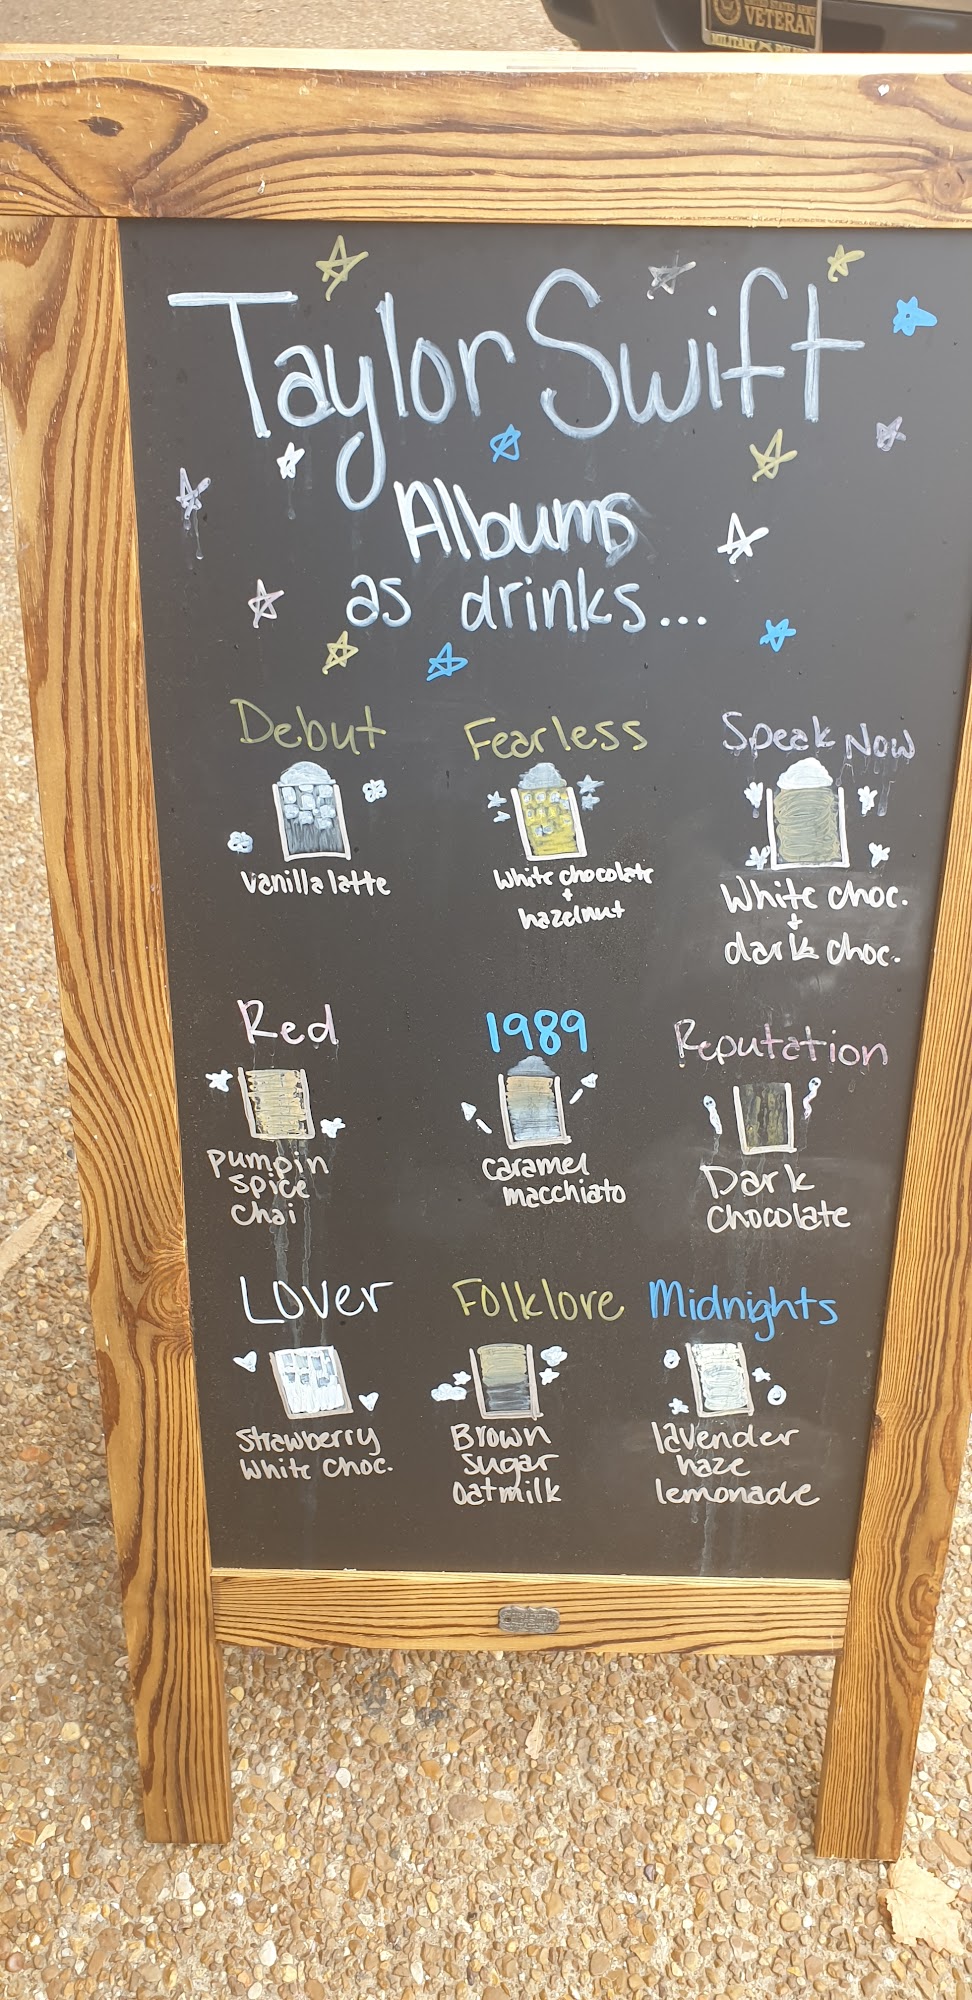 UNITED STATES ARMY
VETERAN
MILITARY POLICE
Taylor Swift
Albums
as drinks...
Debut
vanilla latte
Fearless
White chocolate
+
hazelnut
Speak Now
White choc.
+
dark choc.
Red
pumpin
spice
chai
1989
caramel
macchiato
Reputation
Dark
chocolate
Lover
strawberry
white choc.
Folklore
Brown
sugar
oatmilk
Midnights
lavender
haze
lemonade